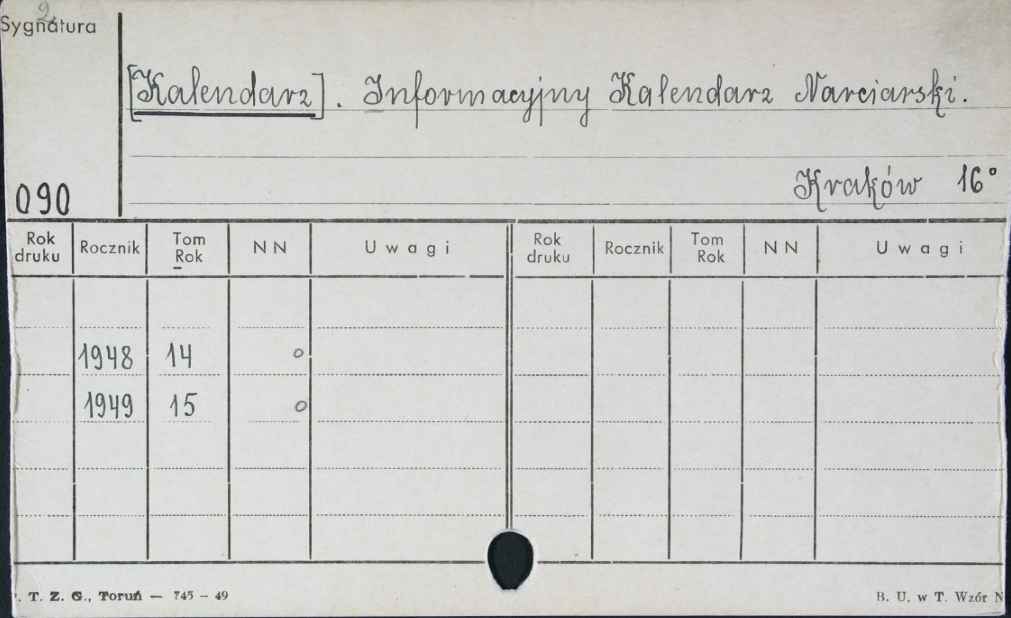 2
Sygnatura
[Kalendarz]. Informacyjny Kalendarz Narciarski.
Kraków 16°
090
Rok druku Rocznik Tom Rok NN Uwagi Rok druku Rocznik Tom Rok NN Uwagi
1948 14 o
1949 15 o
. T. Z. G., Toruń — 745 – 49
B. U. w T. Wzór N